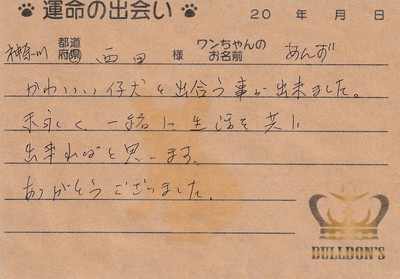 運命の出会い 20 年 月 日
神奈川 都道府県 西田 様 ワンちゃんのお名前 あんず
かわいい仔犬と出合う事が出来ました。
末永く、一緒に生活を共に
出来ればと思います。
ありがとうございました。
BULLDON'S